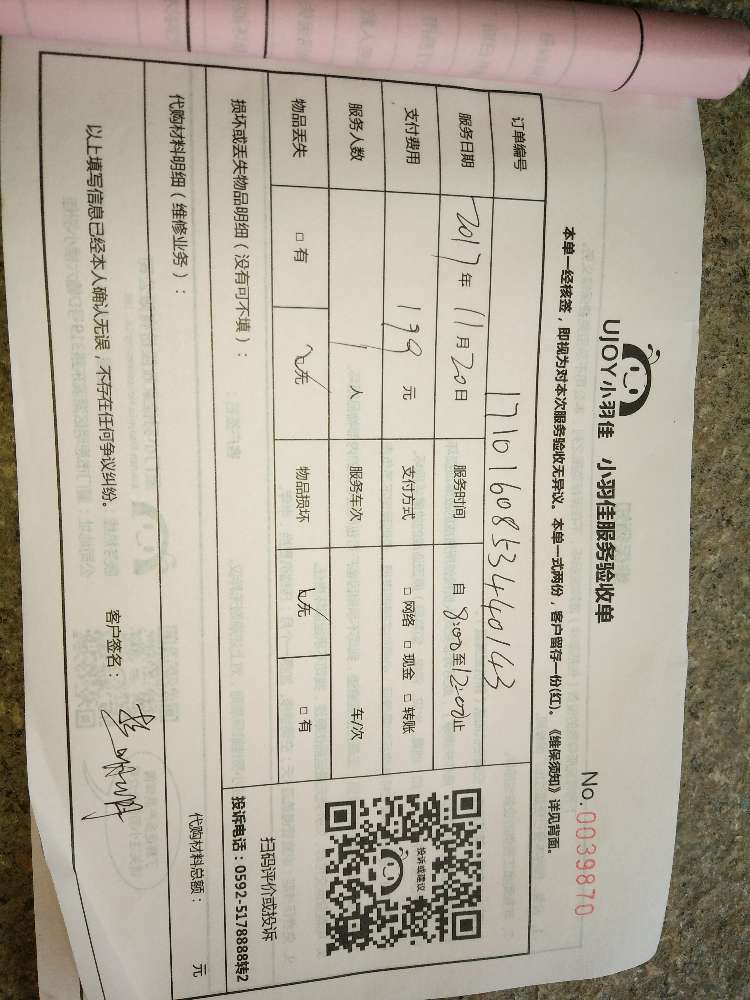 UJOY小羽佳 小羽佳服务验收单
No. 0039870
本单一经核签，即视为对本次服务验收无异议。本单一式两份，客户留存一份(红)。《维保须知》详见背面。
订单编号 1710160853440143
服务日期 2017年11月20日 服务时间 自8:00至12:00止
支付费用 199元 支付方式 □网络 □现金 □转账
服务人数 1人 服务车次 车/次
物品丢失 □有 □无 物品损坏 □无 □有
损坏或丢失物品明细（没有可不填）：
投诉或建议
扫码评价或投诉
投诉电话：0592-5178888转2
代购材料明细（维修业务）：
代购材料总额： 元
以上填写信息已经本人确认无误，不存在任何争议纠纷。
客户签名：